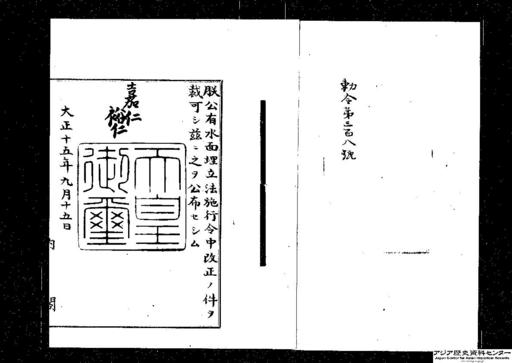 勅令第三百八號
朕公有水面埋立法施行令中改正ノ件ヲ
裁可シ茲ニ之ヲ公布セシム
嘉仁
裕仁
天皇
御璽
大正十五年九月十五日
内閣
アジア歴史資料センター
Japan Center for Asian Historical Records